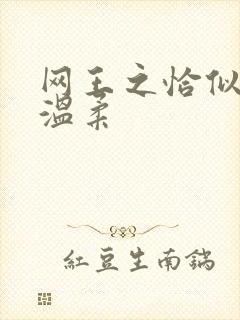 网王之恰似
温柔
红豆生南锅